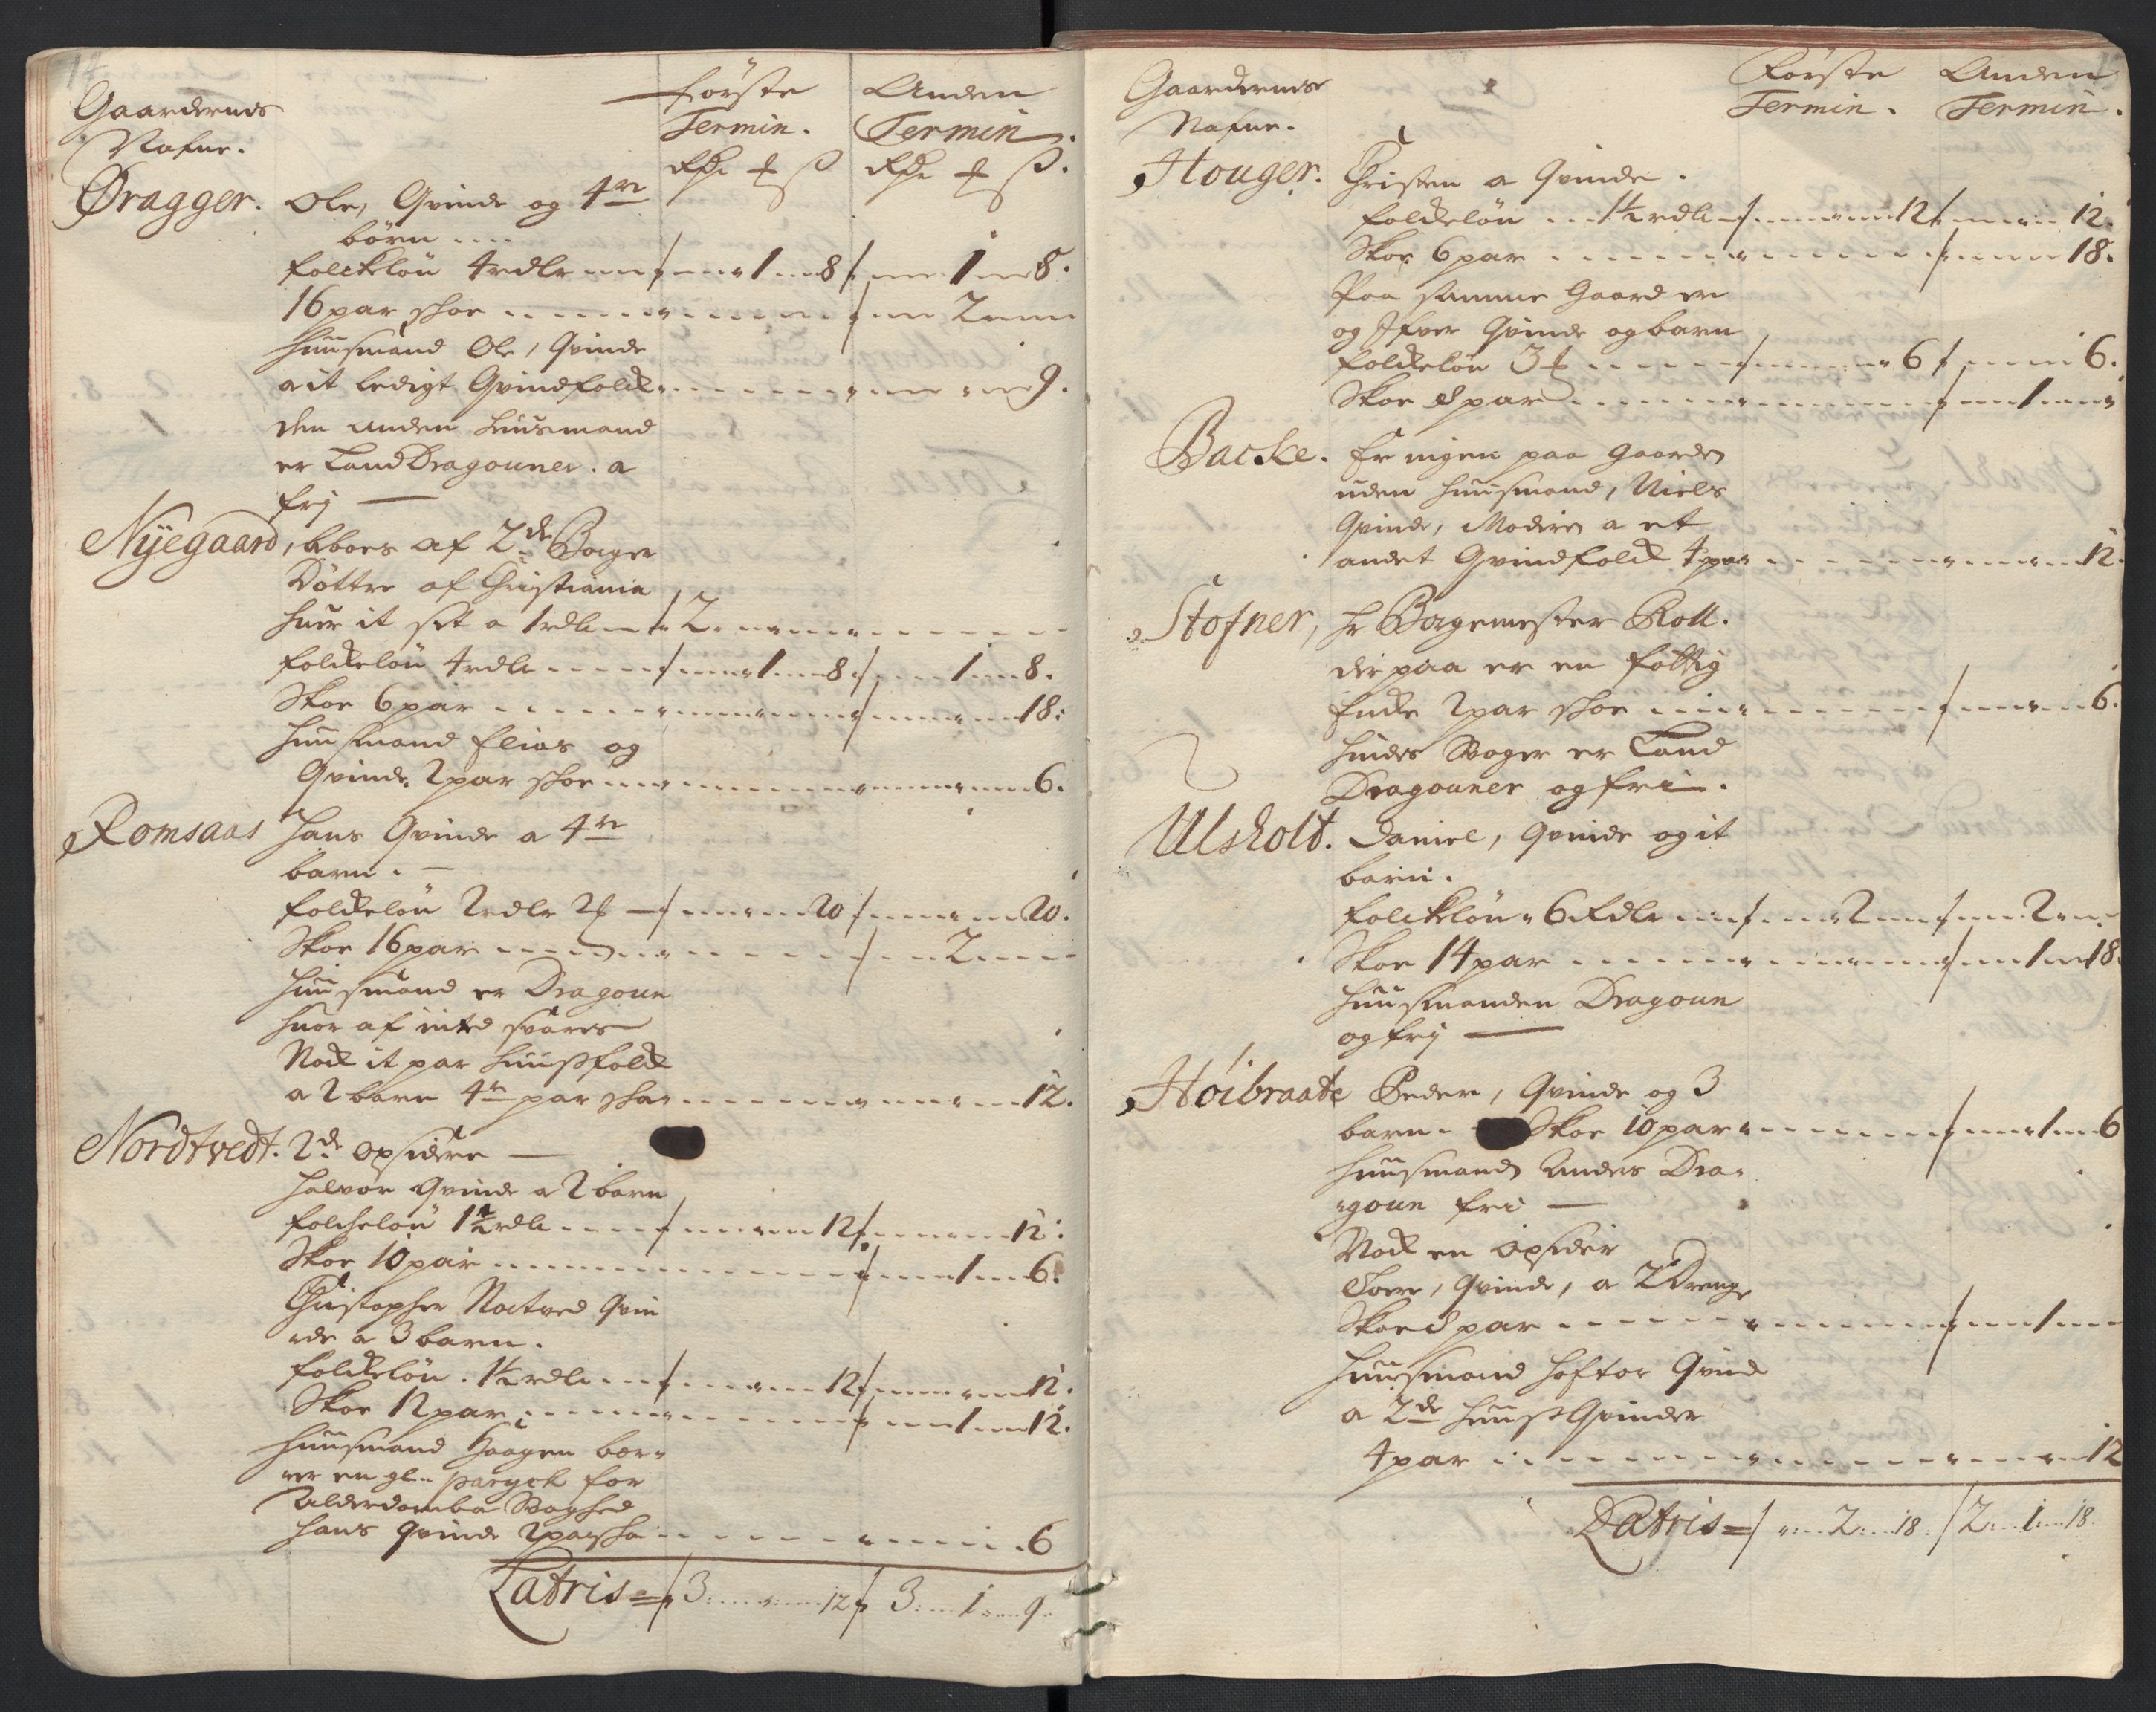 12
Gaardernes
Nafne.
Første Anden
Termin. Termin.
Rdr ƶ ß Rdr ƶ ß.
Øragger. Ole, Qvinde og 4re
børn
folckeløn 4 rdlr 1 8 1 8.
16 par skoe 2
Huusmand Ole, Qvinde
a it ledigt Qvindfolck 9.
den anden huusmand
er Land Dragouner. a
frij
Nyegaard, boes af 2de Borger
Døttre af Christiania
huer it set a 1 rdlr 2
folckeløn 4 rdlr 1 8 1 8.
Skoe 6 par 18:
Huusmand Elias og
Qvinde 2 par skoe 6.
Romsaas Hans Qvinde a 4re
barn.
folckeløn 2 rdlr 2ƶ 20 20.
Skoe 16 par 2
Huusmand er Dragoun
huor af inted svares
Nock it par huusfolck
a 2 barn 4re par skoe 12.
Nordtvedt. 2de opsidere
Halvor Qvinde a 2 barn
folckeløn 1½ rdlr 12 12:
Skoe 10 par 1 6.
Christopher Nortved Qvin
de a 3 barn.
folckeløn. 1½ rdlr 12 12.
Skoe 12 par 1 12.
Huusmand Haagen bær
er en gl. paryck for
Alderdom Svaghed
hans Qvinde 2 par sko 6
Latris 3 12 3 1 9
Gaardernes
Nafne.
Første Anden
Termin. Termin.
Houger. Christen a Qvinde.
folckeløn 1½ rdlr 12 12.
Skoe 6 par 18.
Paa samme Gaard er
og Ifver Qvinde og barn
folckeløn 3ƶ 6 6.
Skoe 8 par 1
Backe. Er ingen paa Gaarden
uden huusmand, Niels
Qvinde, Moderen a et
andet Qvindfolck 4 par 12.
Stofner, Hr Borgemester Roll.
der paa er en fattig
Encke 2 par skoe 6.
hindes Svoger er Land
Dragouner og fri.
Ulsholt. Daniel, Qvinde og it
barn.
folckeløn 6 Rdlr 2 2
Skoe 14 par 1 18.
Huusmanden Dragoun
og frij
Höibraate Peder, Qvinde og 3
barn. Skoe 10 par 1 6
Huusmand Anders Dra-
goun fri
Nock en opsider
Tore, Qvinde, a 2 Drenge
Skoe 8 par 1
Huusmand Hoftor Qvind
a 2de huus Qvinder
4 par 12
Latris 2 18 2 1 18.